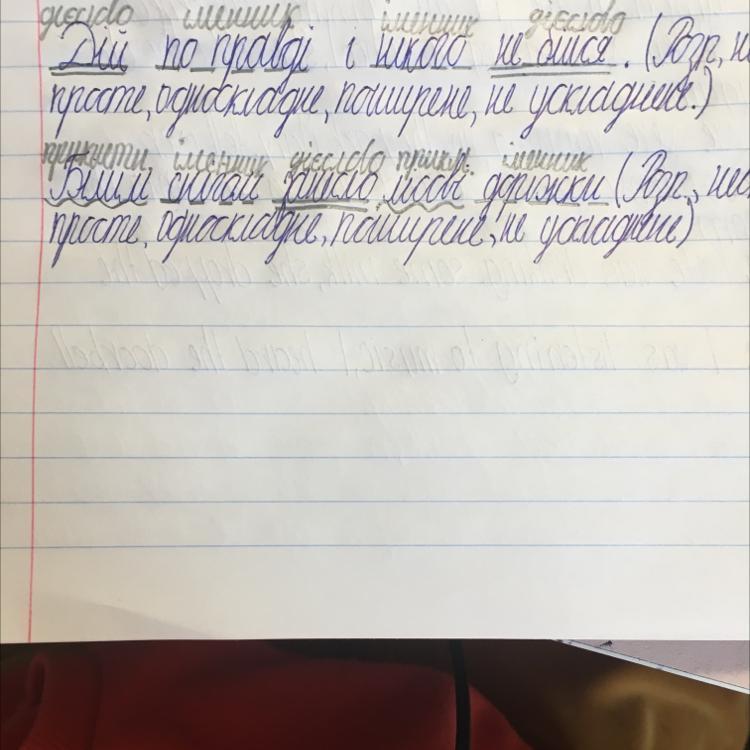 дієслово іменник іменник дієслово
Дій по правді і нікого не бійся. (Розр,
просте, односкладне, поширене, не ускладнене.)
прикметн. іменник дієслово прикм. іменник
Білим снігом замело лісові доріжки (Розр.,
просте, односкладне, поширене, не ускладнене)
I was listening to music, I heard the doorbell